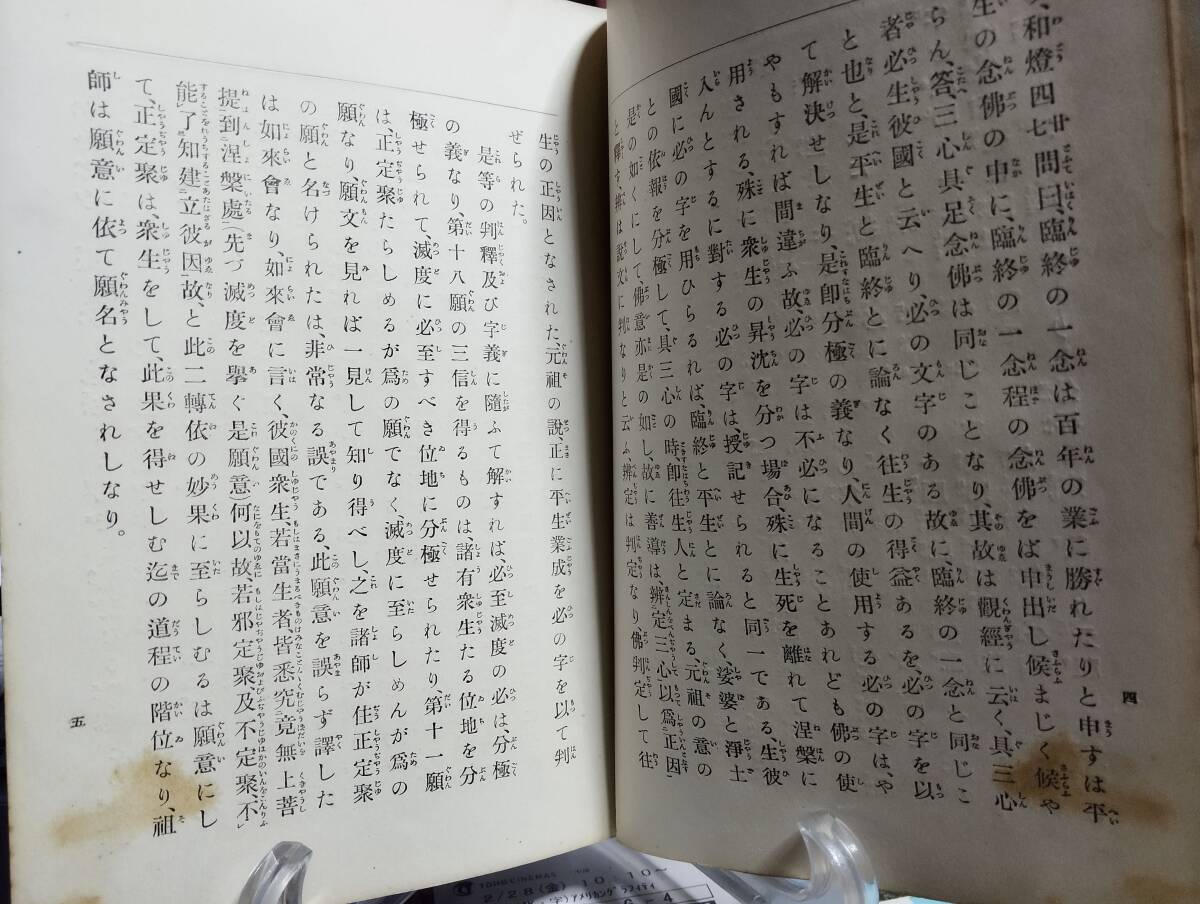 和燈四廿七問曰、臨終の一念は百年の業に勝れたりと申すは平
生の念佛の中に、臨終の一念程の念佛をば申出し候まじく候や
らん、答、三心具足念佛は同じことなり、其故は觀經に云く、具三心
者必生彼國と云へり、必の文字のある故に、臨終の一念と同じこ
と也と、是平生と臨終とに論なく往生の得益あるを必の字を以
て解決せしなり、是卽分極の義なり、人間の使用する必の字は、や
やもすれば間違ふ故、必の字は不必になることあれども佛の使
用される、殊に衆生の昇沈を分つ場合、殊に生死を離れて涅槃に
入んとするに對する必の字は、授記せられると同一である、生彼
國に必の字を用ひらるれば、臨終と平生とに論なく、娑婆と淨土
との依報を分極して、具三心の時、卽往生人と定まる、元祖の意の
是の如くにして、佛意亦是の如し、故に善導は、辨定三心以爲正因
と釋す、辨は說文に判なりと云ふ、辨定は判定なり、佛判定して往
四
生の正因となされた、元祖の說、正に平生業成を必の字を以て判
ぜられた。
是等の判釋及び字義に隨ふて解すれば、必至滅度の必は、分極
の義なり、第十八願の三信を得るものは、諸有衆生たる位地を分
極せられて、滅度に必至すべき位地に分極せられたり、第十一願
は、正定聚たらしめるが爲の願でなく、滅度に至らしめんが爲の
願なり、願文を見れば一見して知り得べし、之を諸師が住正定聚
の願と名けられたは、非常なる誤である、此願意を誤らず譯した
は如來會なり、如來會に言く、彼國衆生、若當生者皆悉究竟無上菩
提到涅槃處(先づ滅度を擧ぐ是願意)何以故、若邪定聚及不定聚、不
能了知建立彼因故、と此二轉依の妙果に至らしむるは願意にし
て、正定聚は、衆生をして、此果を得せしむ迄の道程の階位なり、祖
師は願意に依て願名となされしなり。
五
TOHO CINEMAS
2/28(金) 10:10~
アメリカングラフィティ